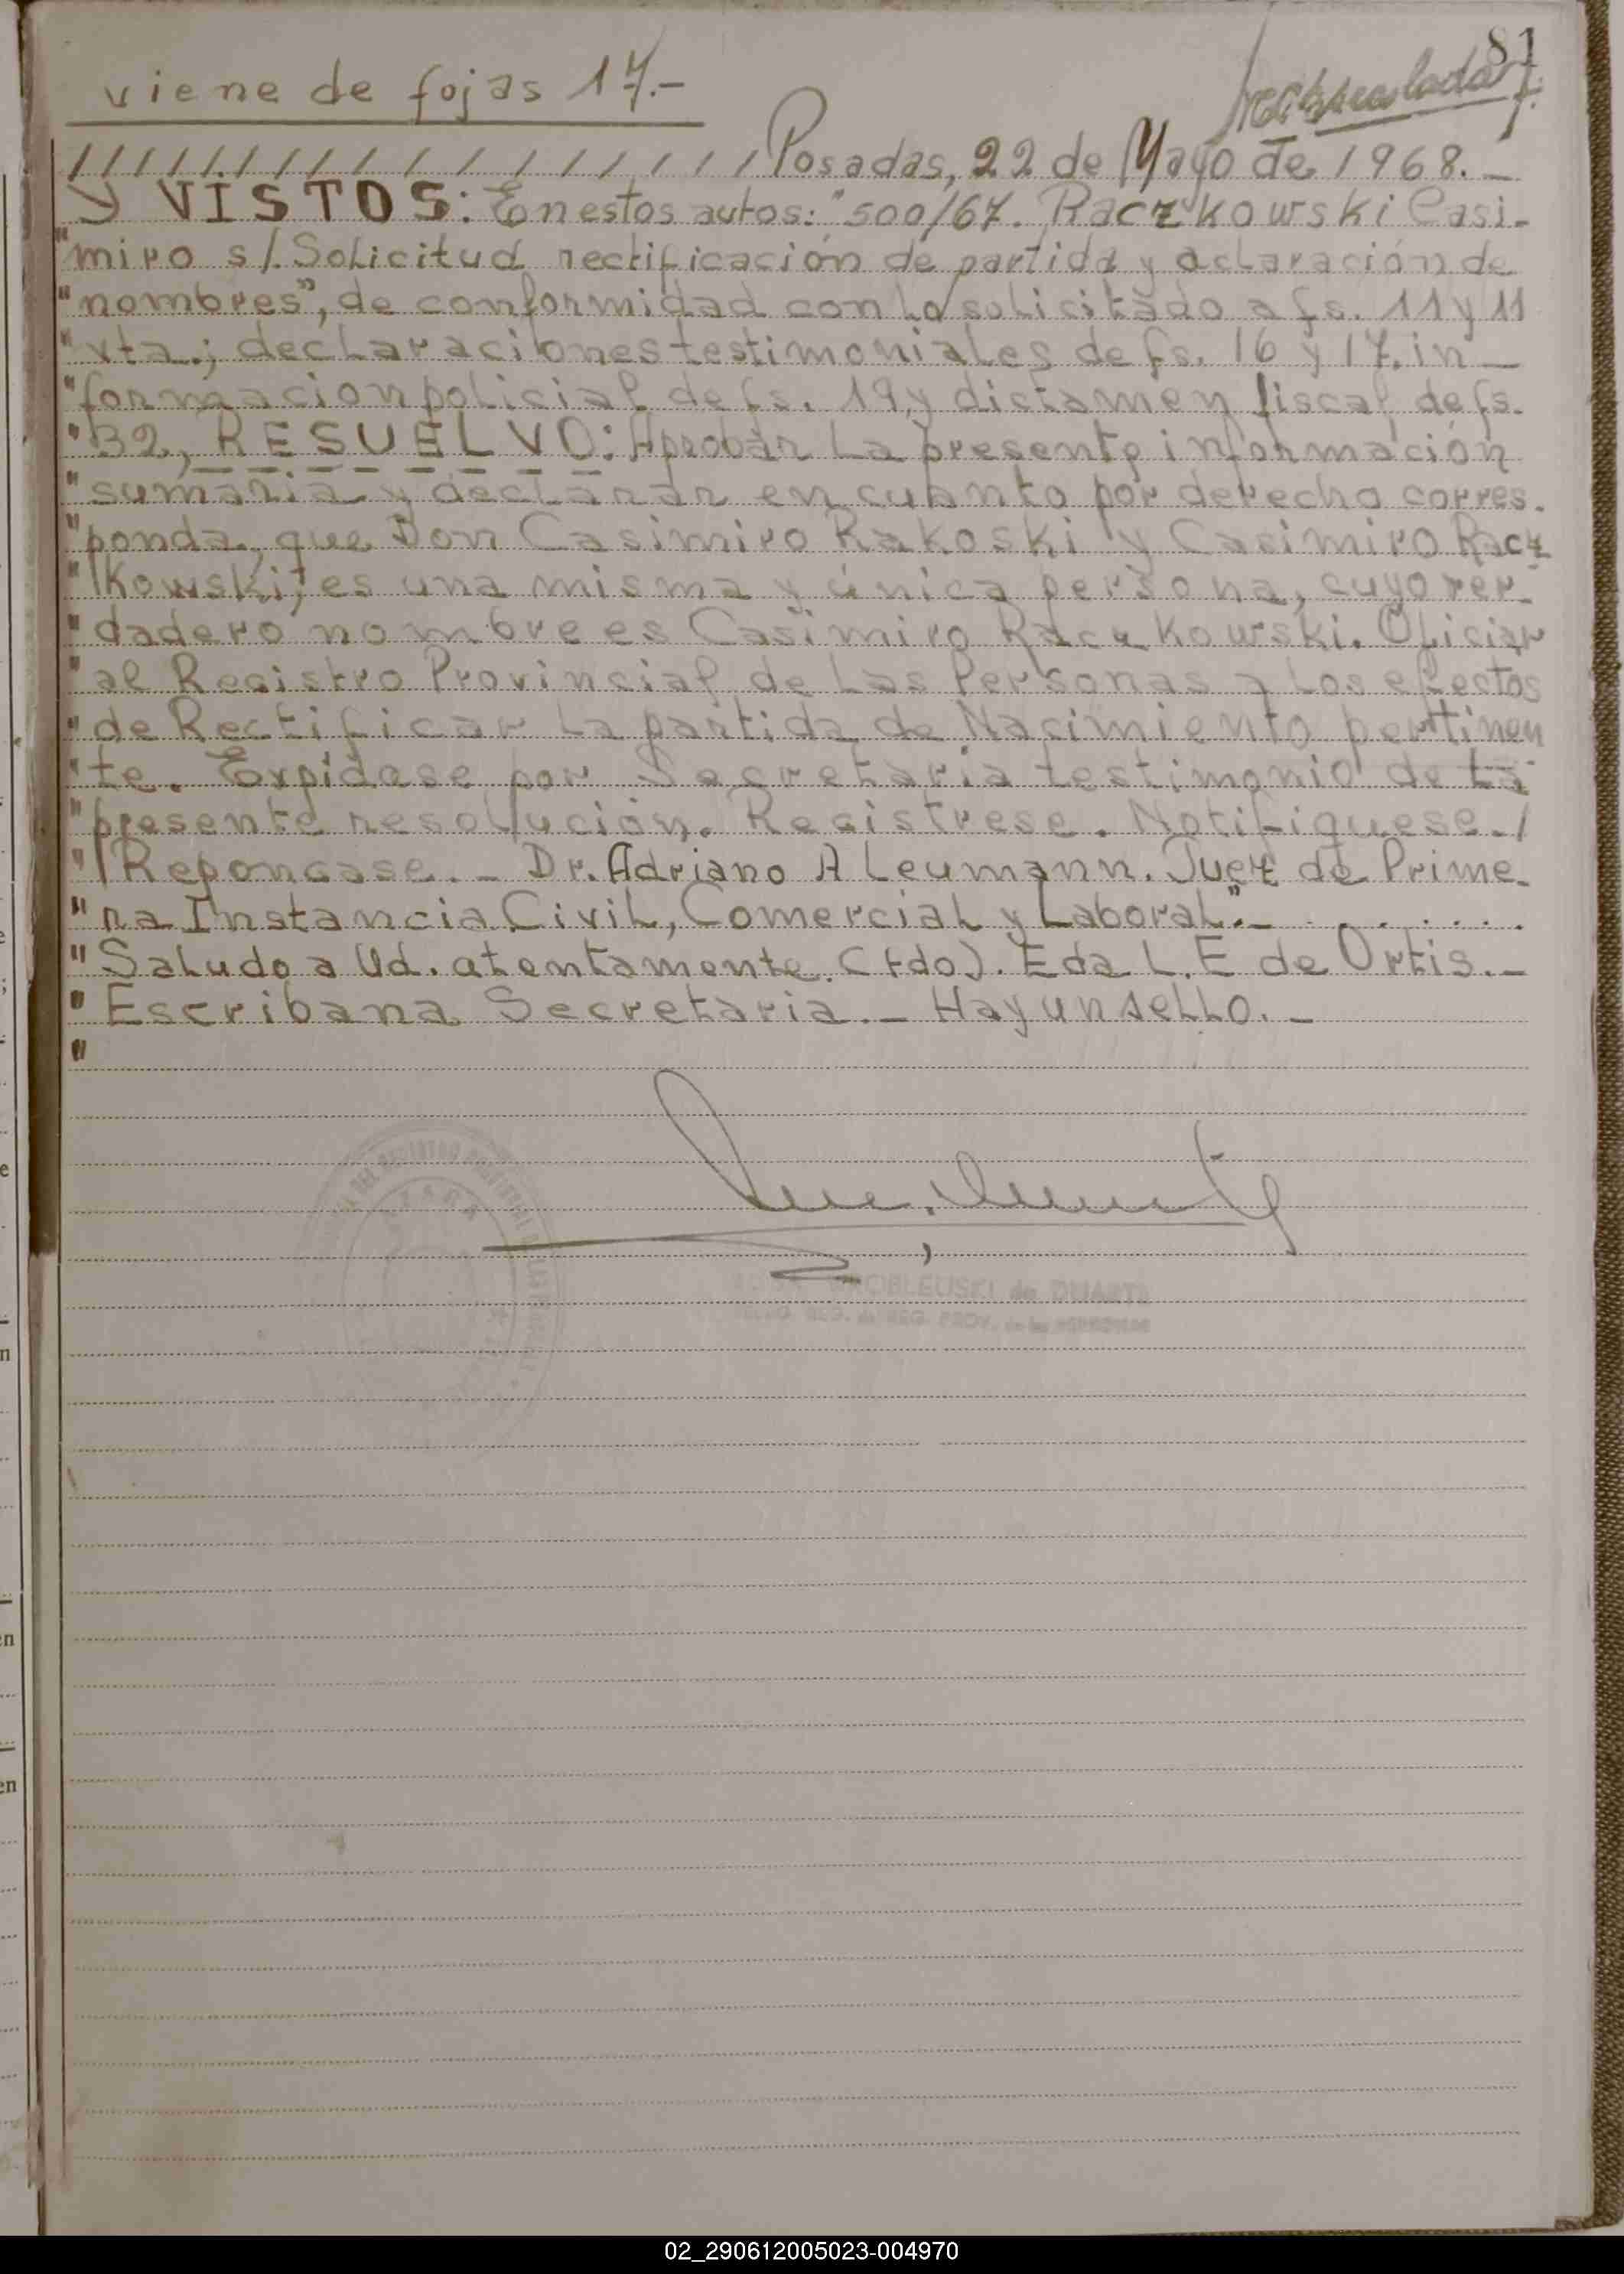 81
viene de fojas 17.-
///////////////////Posadas, 22 de Mayo de 1968.-
Y VISTOS: En estos autos: "500/67. Raczkowski Casi-
"miro s/. Solicitud rectificación de partida y aclaración de
"nombres", de conformidad con lo solicitado a fs. 11 y 11
"vta.; declaraciones testimoniales de fs. 16 y 17. in-
"formacion policial de fs. 19 y dictamen fiscal de fs.
"32, RESUELVO: Aprobar la presente información
"sumaria y declarar en cuanto por derecho corres.
"ponda, que Don Casimiro Rakoski y Casimiro Racz
"kowski, es una misma y única persona, cuyo ver-
"dadero nombre es Casimiro Raczkowski. Oficiar
"al Registro Provincial de las Personas a los efectos
"de Rectificar la partida de Nacimiento pertinen
"te. Expidase por Secretaria testimonio de la
"presente resolución. Registrese. Notifiquese./
"/Repongase.- Dr. Adriano A Leumann. Juez de Prime-
"ra Instancia Civil, Comercial y Laboral".- . . . . . . .
"Saludo a Ud. atentamente. (fdo). Eda L. E de Ortis.-
"Escribana Secretaria.- Hay un sello.-
"
WROBLEUSKI de DUARTE
REG. de REG. PROV. de las PERSONAS
02_290612005023-004970